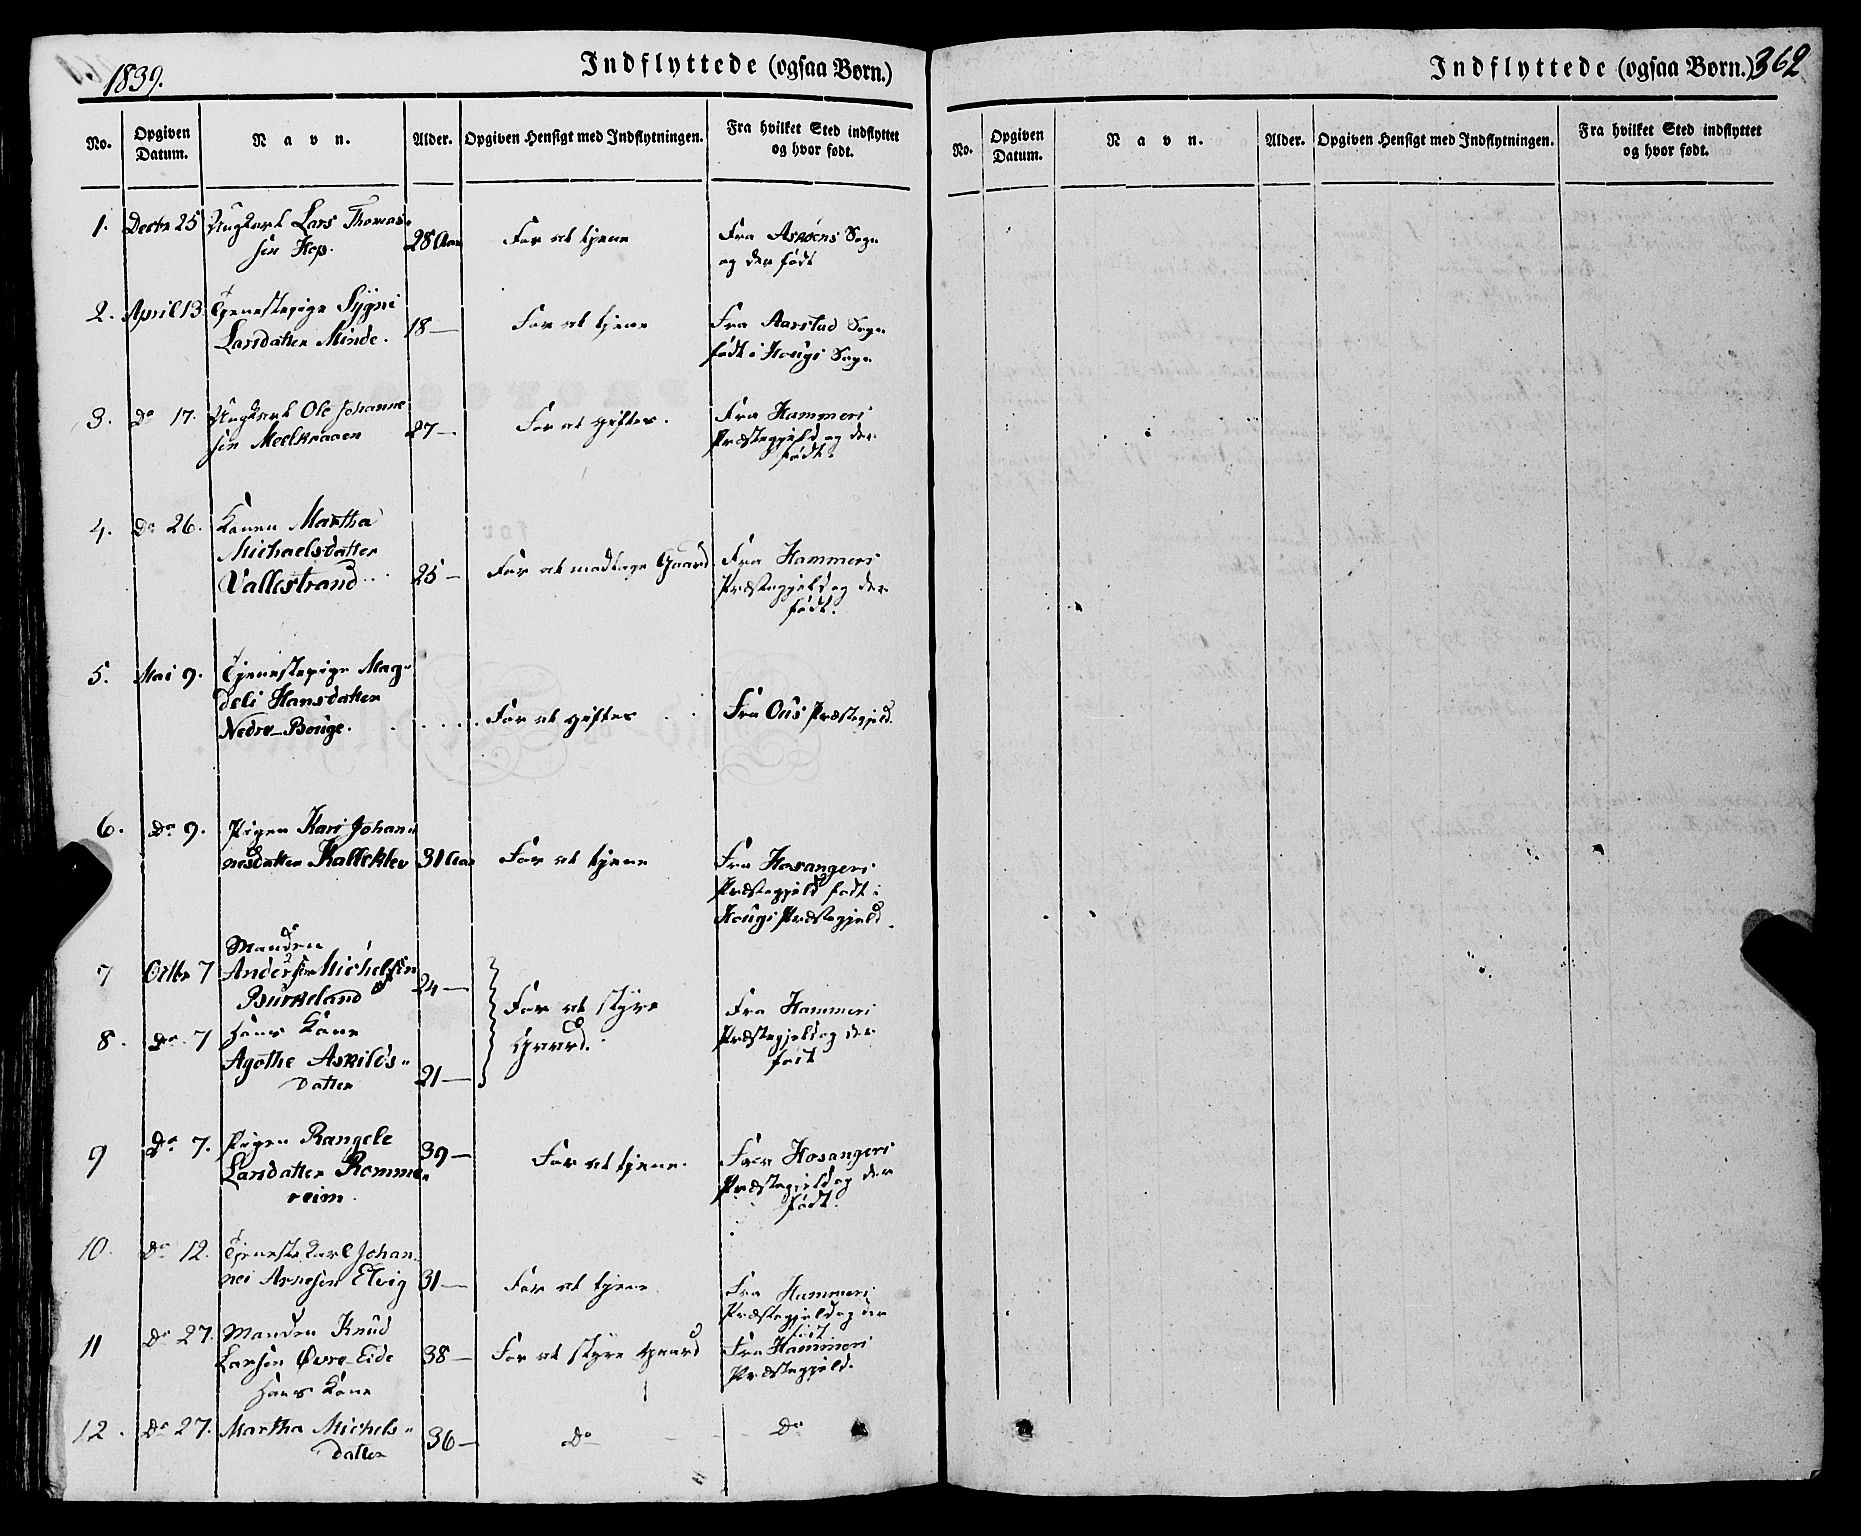 1839.
Indflyttede (ogsaa Børn.)
No.
Opgiven Datum.
Navn.
Alder.
Opgiven Hensigt med Indflytningen.
Fra hvilket Sted indflyttet og hvor født.
1. Decbr 25 Ungkarl Lars Thomas-
sen Hop. 28 Aar For at tjene Fra Askøens Sogn
og der født
2. April 13 Tjenestepige Sygni
Larsdatter Minde. 18— For at tjene Fra Aarstad Sogn
født i Hougs Sogn
3. Do 17. Ungkarl Ole Johanne
sen Meelkraaen 27— For at giftes. Fra Hammers
Præstegjeld og der
født.
4. Do 26. Konen Martha
Michaelsdatter
Vallestrand 25— For at modtage Gaard Fra Hammers
Præstegjeld og der
født.
5. Mai 9. Tjenestepige Mag-
deli Hansdatter
Nedre-Bouge. For at giftes Fra Ous Præstegjeld.
6. Do 9. Pigen Kari Johan-
nesdatter Kalleklev 31 Aar For at tjene Fra Hosangers
Præstegjeld født i
Hougs Præstegjeld.
7 Octbr 7 Manden
Anders Michelsen
Burkeland 24—
8. Do 7 Hans Kone
Agathe Askilds-
datter 21— For at styre
Gaard. Fra Hammers
Præstegjeld og der
født
9 Do 7. Pigen Rangele
Larsdatter Romme-
reim. 39— For at tjene. Fra Hosangers
Præstegjeld og der
født.
10. Do 12. Tjenestekarl Johan
nes Arnesen Elvig 31— For at tjene Fra Hammers
Præstegjeld og der
født
11 Do 27. Manden Knud
Larsen Øvre-Eide 38— For at styre Gaard Fra Hammers
Præstegjeld.
Hans Kone
12. Do 27. Martha Michels-
datter 36— Do Do
Indflyttede (ogsaa Børn.) 362
No.
Opgiven Datum.
Navn.
Alder.
Opgiven Hensigt med Indflytningen.
Fra hvilket Sted indflyttet og hvor født.